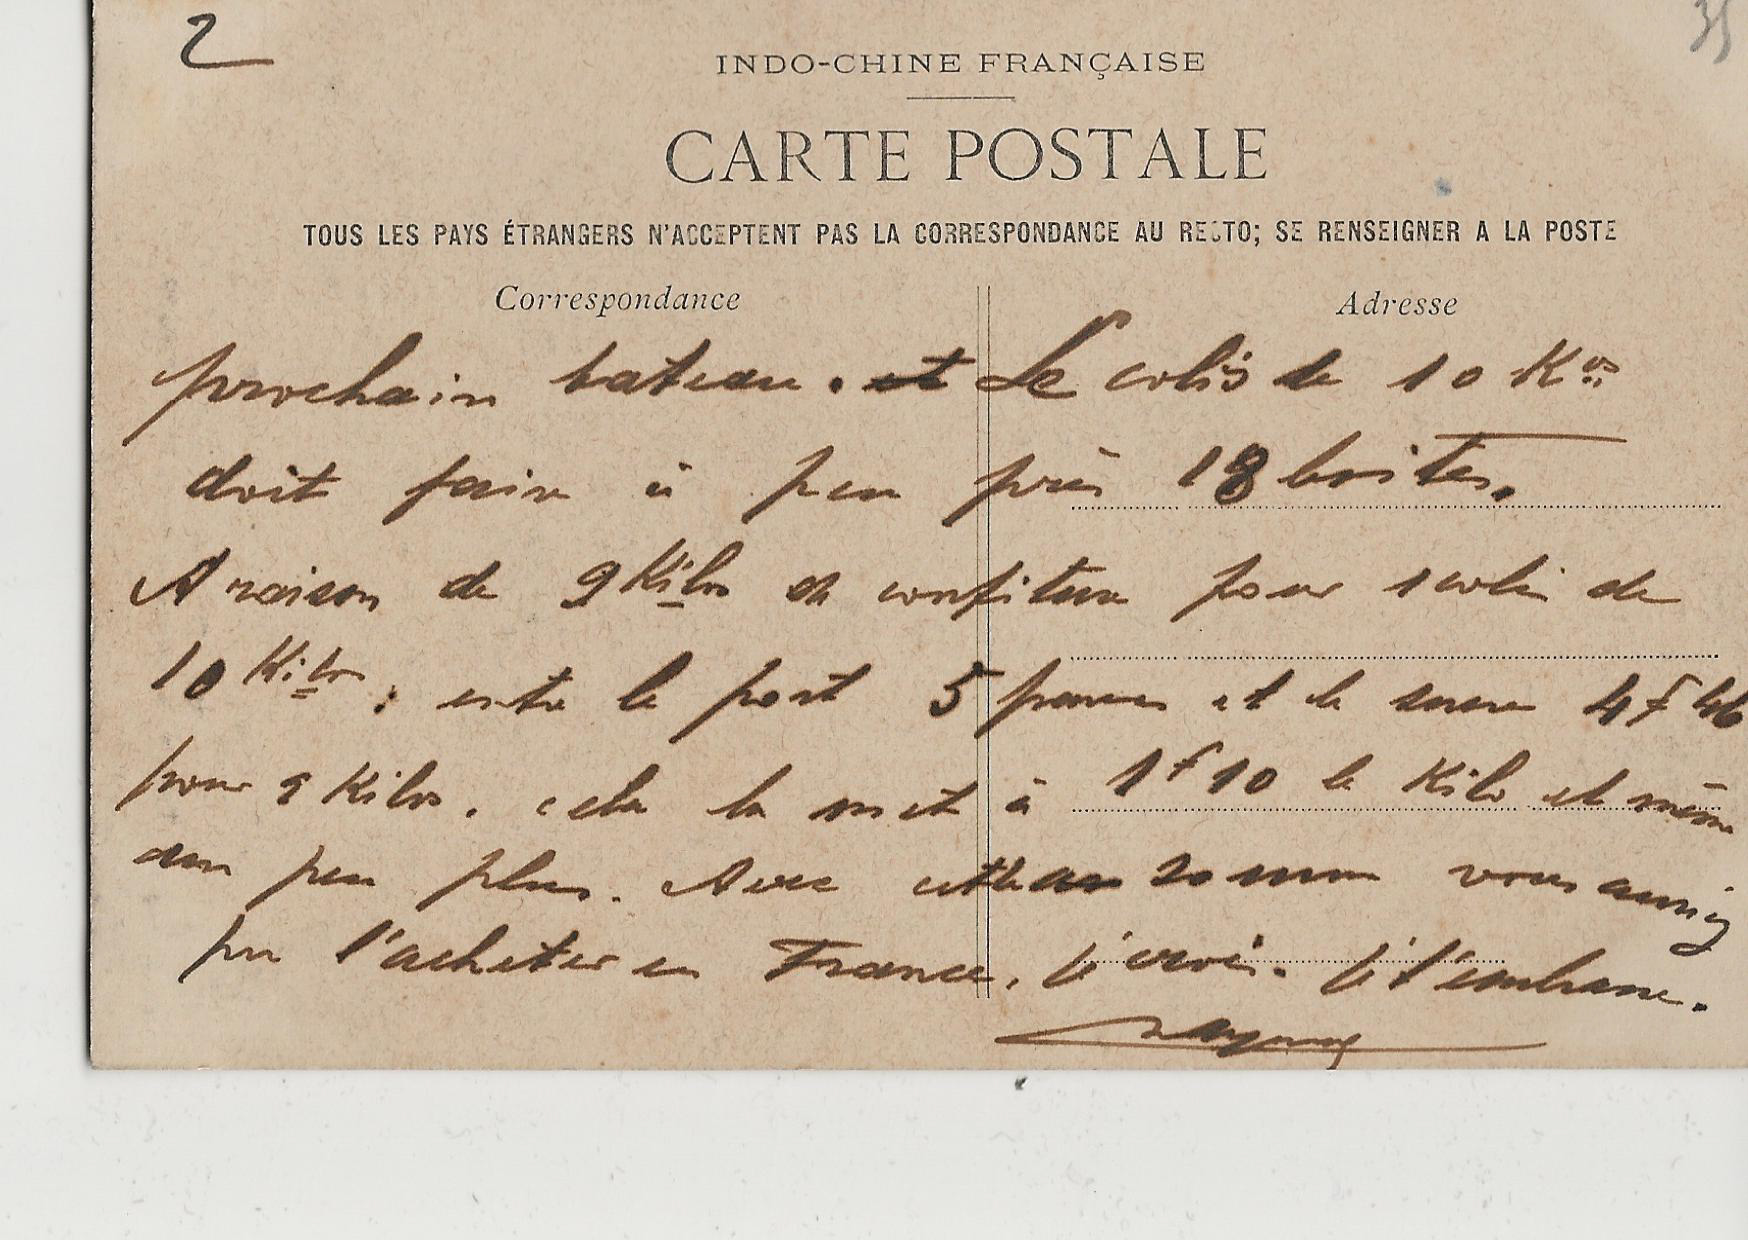 2
35
INDO-CHINE FRANÇAISE
CARTE POSTALE
TOUS LES PAYS ÉTRANGERS N'ACCEPTENT PAS LA CORRESPONDANCE AU RECTO; SE RENSEIGNER A LA POSTE
Correspondance
Adresse
prochain bateau. et Le colis de 10 Kos
doit faire à peu près 18 boites.
A raison de 9 Kilos de confiture pour 1 colis de
10 Kilos; entre le port 5 francs et le sucre 4f 46
pour 9 Kilos. cela la met à 1f 10 le Kilo et même
un peu plus. Avec cette somme vous auriez
pu l'acheter en France, je crois. Je t'embrasse.